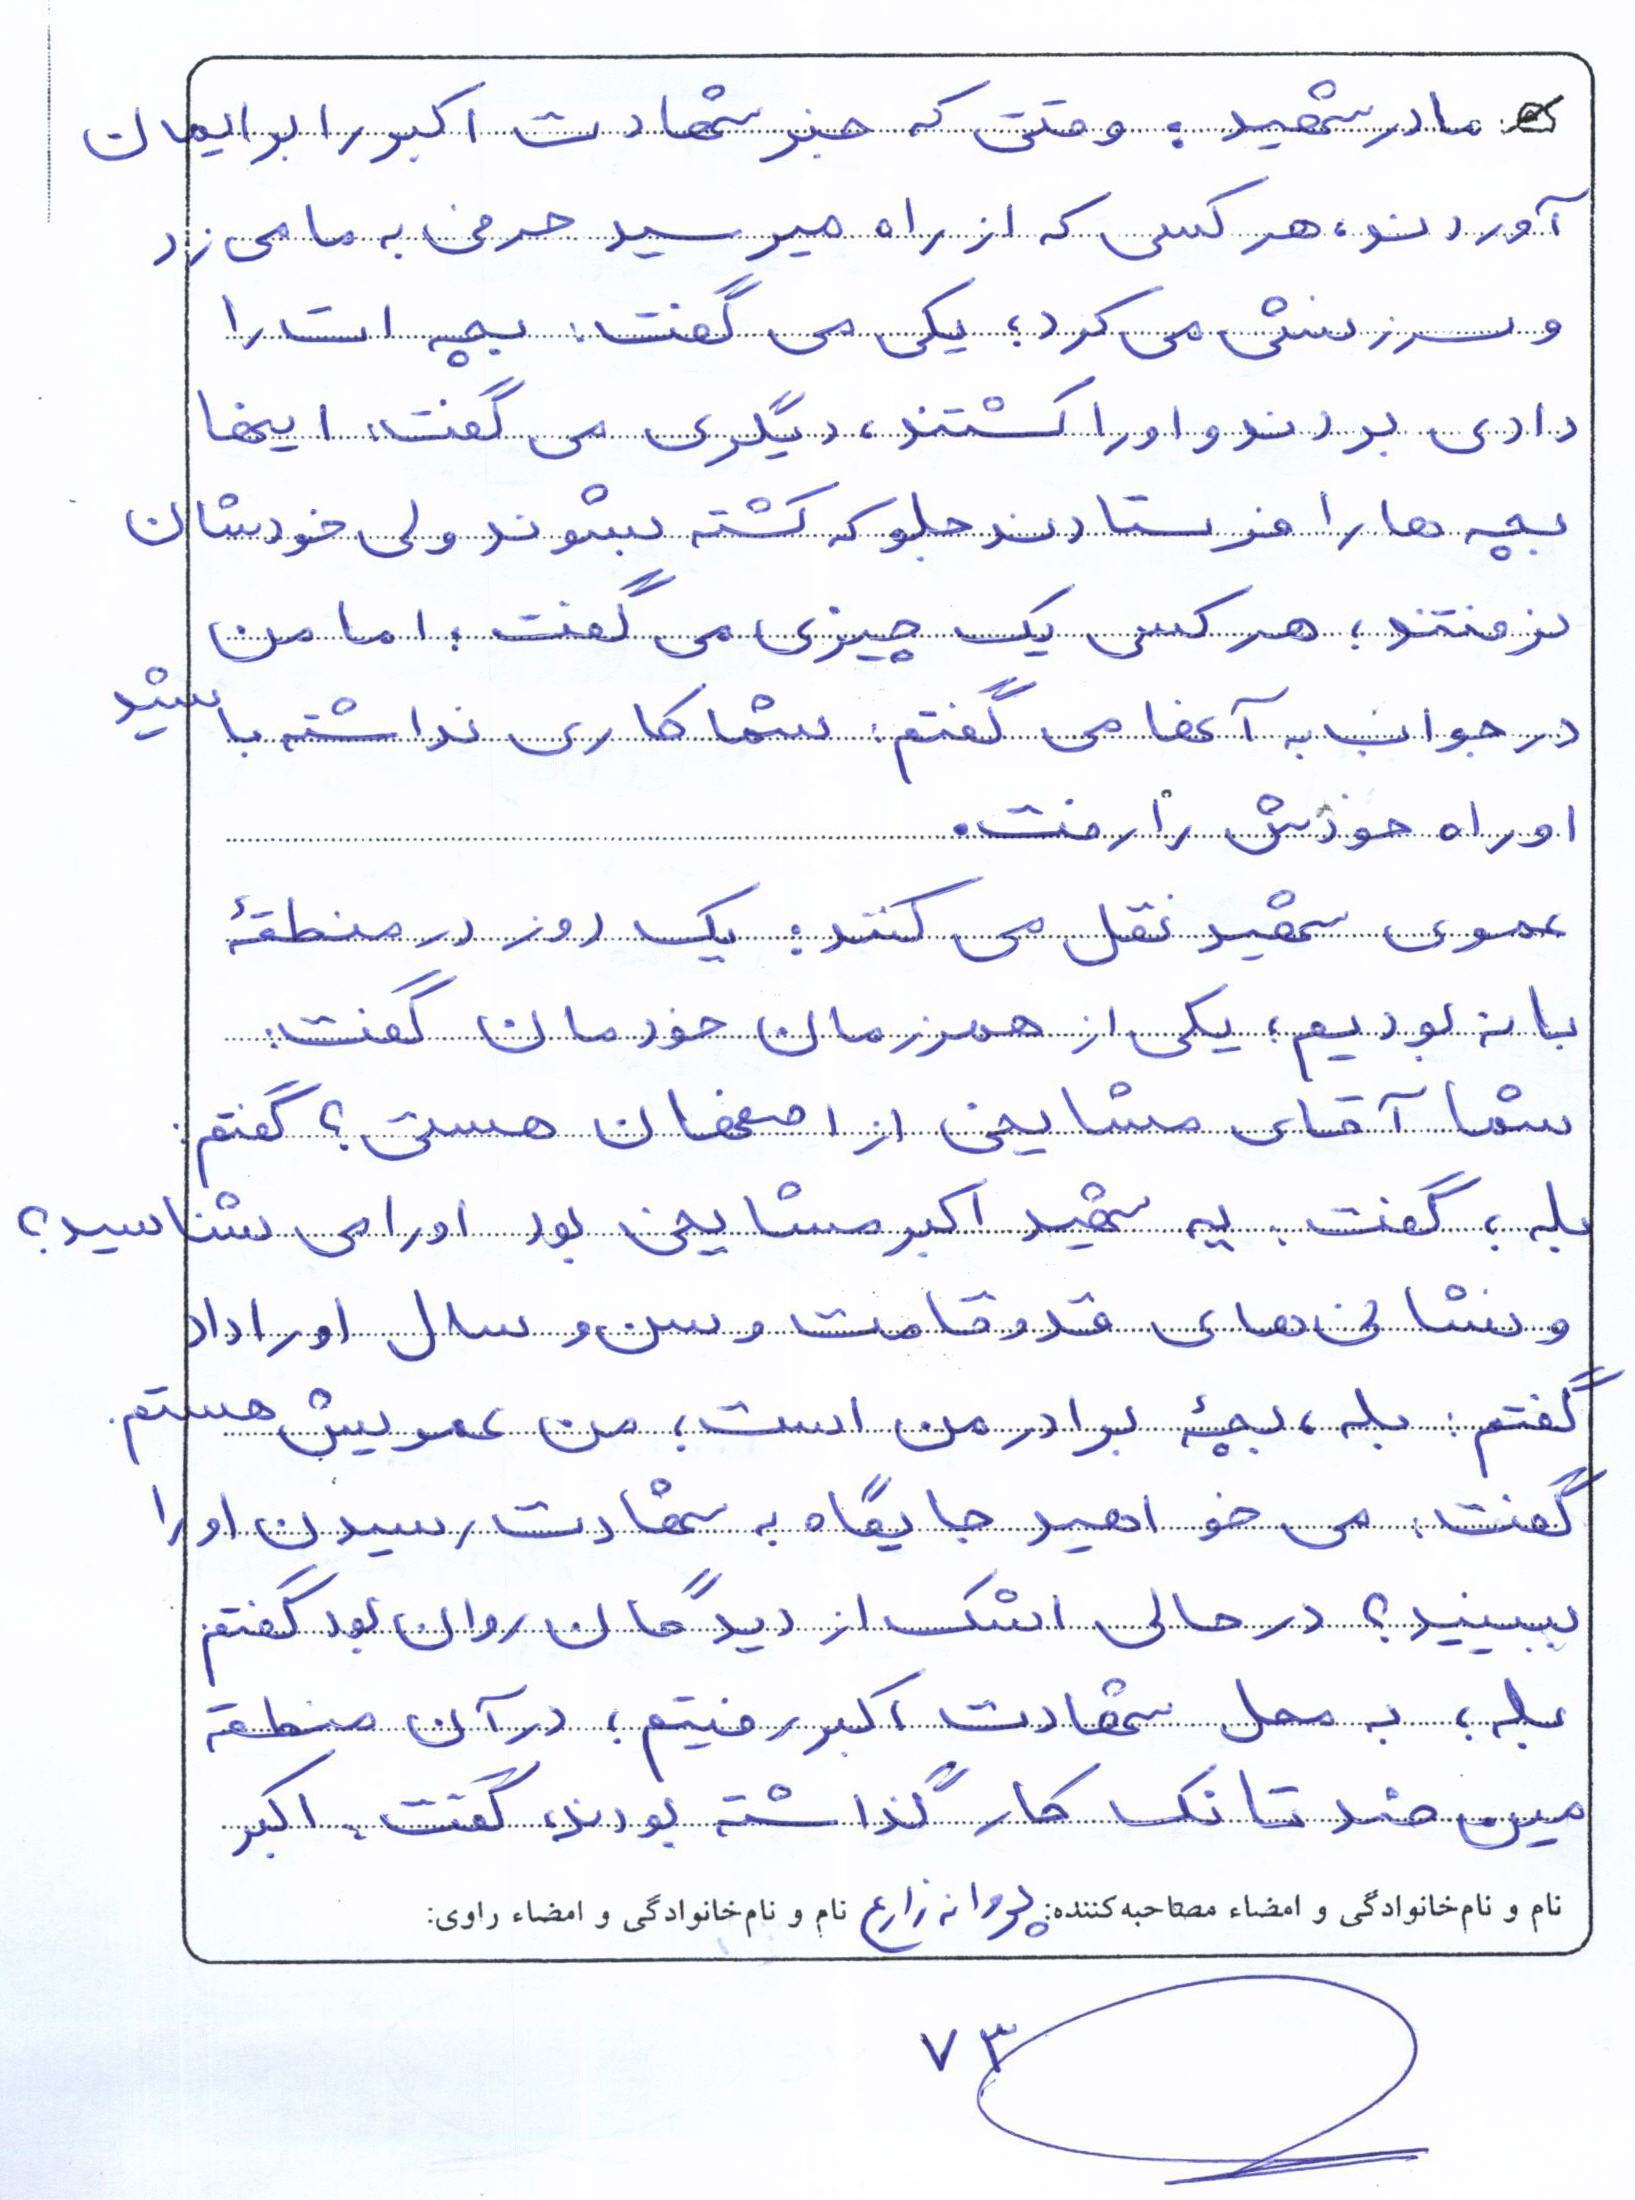 مادر شهید: وقتی که خبر شهادت اکبر را برایمان
آوردند، هر کسی که از راه میرسید حرفی به ما می زد
و سرزنش می کرد؛ یکی می گفت: بچه ات را
دادی بردند و او را کشتند، دیگری می گفت: اینها
بچه ها را فرستادند جلو که کشته بشوند ولی خودشان
نرفتند؛ هر کسی یک چیزی می گفت؛ اما من
در جواب به آنها می گفتم: شما کاری نداشته باشید
او راه خودش را رفت.
عموی شهید نقل می کنند: یک روز در منطقهٔ
بانه بودیم؛ یکی از همرزمان خودمان گفت:
شما آقای مشایخی از اصفهان هستی؟ گفتم:
بله؛ گفت: یه شهید اکبر مشایخی بود او را می شناسید؟
و نشانی های قد و قامت و سن و سال او را داد
گفتم: بله، بچهٔ برادر من است؛ من عمویش هستم.
گفت: می خواهید جایگاه به شهادت رسیدن او را
ببینید؟ در حالی اشک از دیدگان روان بود گفتم
بله؛ به محل شهادت اکبر رفتیم؛ در آن منطقه
مین ضد تانک کار گذاشته بودند، گفت: اکبر
نام و نام خانوادگی و امضاء مصاحبه کننده: پروانه زارع نام و نام خانوادگی و امضاء راوی:
۷۳